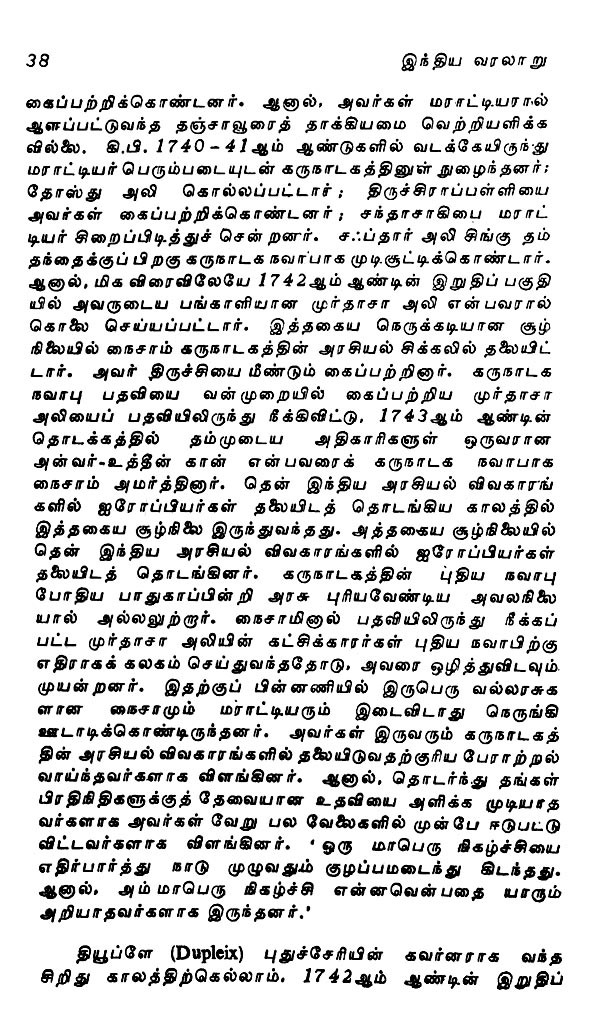 38 இந்திய வரலாறு
கைப்பற்றிக்கொண்டனர். ஆனால், அவர்கள் மராட்டியரால்
ஆளப்பட்டுவந்த தஞ்சாவூரைத் தாக்கியமை வெற்றியளிக்க
வில்லை. கி.பி. 1740-41ஆம் ஆண்டுகளில் வடக்கேயிருந்து
மராட்டியர் பெரும்படையுடன் கருநாடகத்தினுள் நுழைந்தனர்;
தோஸ்து அலி கொல்லப்பட்டார்; திருச்சிராப்பள்ளியை
அவர்கள் கைப்பற்றிக்கொண்டனர்; சந்தாசாகிபை மராட்
டியர் சிறைப்பிடித்துச் சென்றனர். சஃப்தார் அலி சிங்கு தம்
தந்தைக்குப் பிறகு கருநாடக நவாபாக முடிசூட்டிக்கொண்டார்.
ஆனால், மிக விரைவிலேயே 1742ஆம் ஆண்டின் இறுதிப் பகுதி
யில் அவருடைய பங்காளியான முர்தாசா அலி என்பவரால்
கொலை செய்யப்பட்டார். இத்தகைய நெருக்கடியான சூழ்
நிலையில் நைசாம் கருநாடகத்தின் அரசியல் சிக்கலில் தலையிட்
டார். அவர் திருச்சியை மீண்டும் கைப்பற்றினார். கருநாடக
நவாபு பதவியை வன்முறையில் கைப்பற்றிய முர்தாசா
அலியைப் பதவியிலிருந்து நீக்கிவிட்டு, 1743ஆம் ஆண்டின்
தொடக்கத்தில் தம்முடைய அதிகாரிகளுள் ஒருவரான
அன்வர்-உத்தீன் கான் என்பவரைக் கருநாடக நவாபாக
நைசாம் அமர்த்தினார். தென் இந்திய அரசியல் விவகாரங்
களில் ஐரோப்பியர்கள் தலையிடத் தொடங்கிய காலத்தில்
இத்தகைய சூழ்நிலை இருந்துவந்தது. அத்தகைய சூழ்நிலையில்
தென் இந்திய அரசியல் விவகாரங்களில் ஐரோப்பியர்கள்
தலையிடத் தொடங்கினர். கருநாடகத்தின் புதிய நவாபு
போதிய பாதுகாப்பின்றி அரசு புரியவேண்டிய அவலநிலை
யால் அல்லலுற்றார். நைசாமினால் பதவியிலிருந்து நீக்கப்
பட்ட முர்தாசா அலியின் கட்சிக்காரர்கள் புதிய நவாபிற்கு
எதிராகக் கலகம் செய்துவந்ததோடு, அவரை ஒழித்துவிடவும்
முயன்றனர். இதற்குப் பின்னணியில் இருபெரு வல்லரசுக
ளான நைசாமும் மராட்டியரும் இடைவிடாது நெருங்கி
ஊடாடிக்கொண்டிருந்தனர். அவர்கள் இருவரும் கருநாடகத்
தின் அரசியல் விவகாரங்களில் தலையிடுவதற்குரிய பேராற்றல்
வாய்ந்தவர்களாக விளங்கினர். ஆனால், தொடர்ந்து தங்கள்
பிரதிநிதிகளுக்குத் தேவையான உதவியை அளிக்க முடியாத
வர்களாக அவர்கள் வேறு பல வேலைகளில் முன்பே ஈடுபட்டு
விட்டவர்களாக விளங்கினர். 'ஒரு மாபெரு நிகழ்ச்சியை
எதிர்பார்த்து நாடு முழுவதும் குழப்பமடைந்து கிடந்தது.
ஆனால், அம்மாபெரு நிகழ்ச்சி என்னவென்பதை யாரும்
அறியாதவர்களாக இருந்தனர்.'
தியூப்ளே (Dupleix) புதுச்சேரியின் கவர்னராக வந்த
சிறிது காலத்திற்கெல்லாம், 1742ஆம் ஆண்டின் இறுதிப்